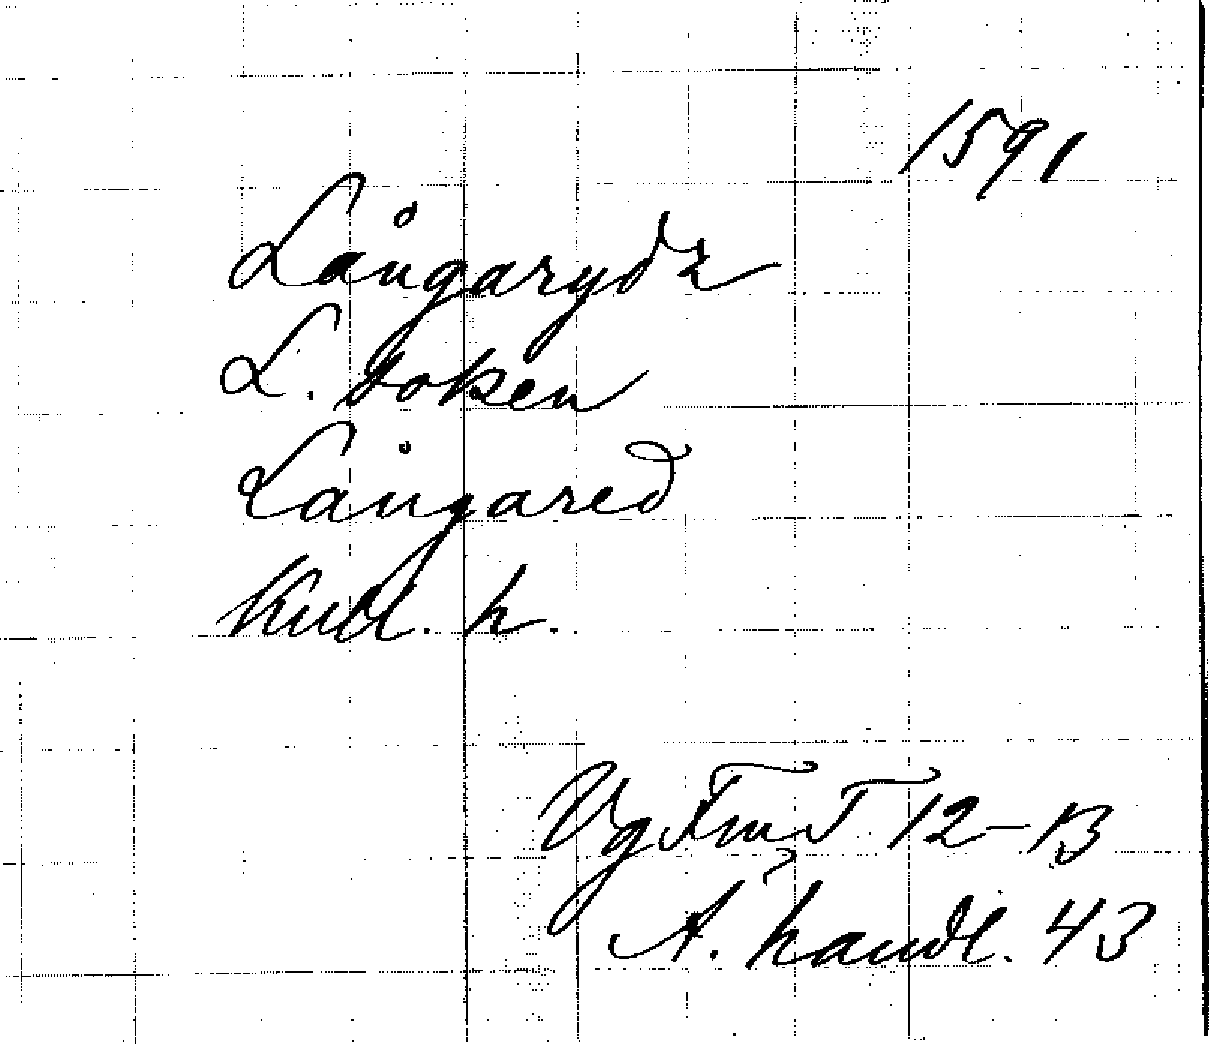 1591
Långarydz
L. soken
Långared
Kull. h.
Vg Fm T 12-13
A. handl. 43